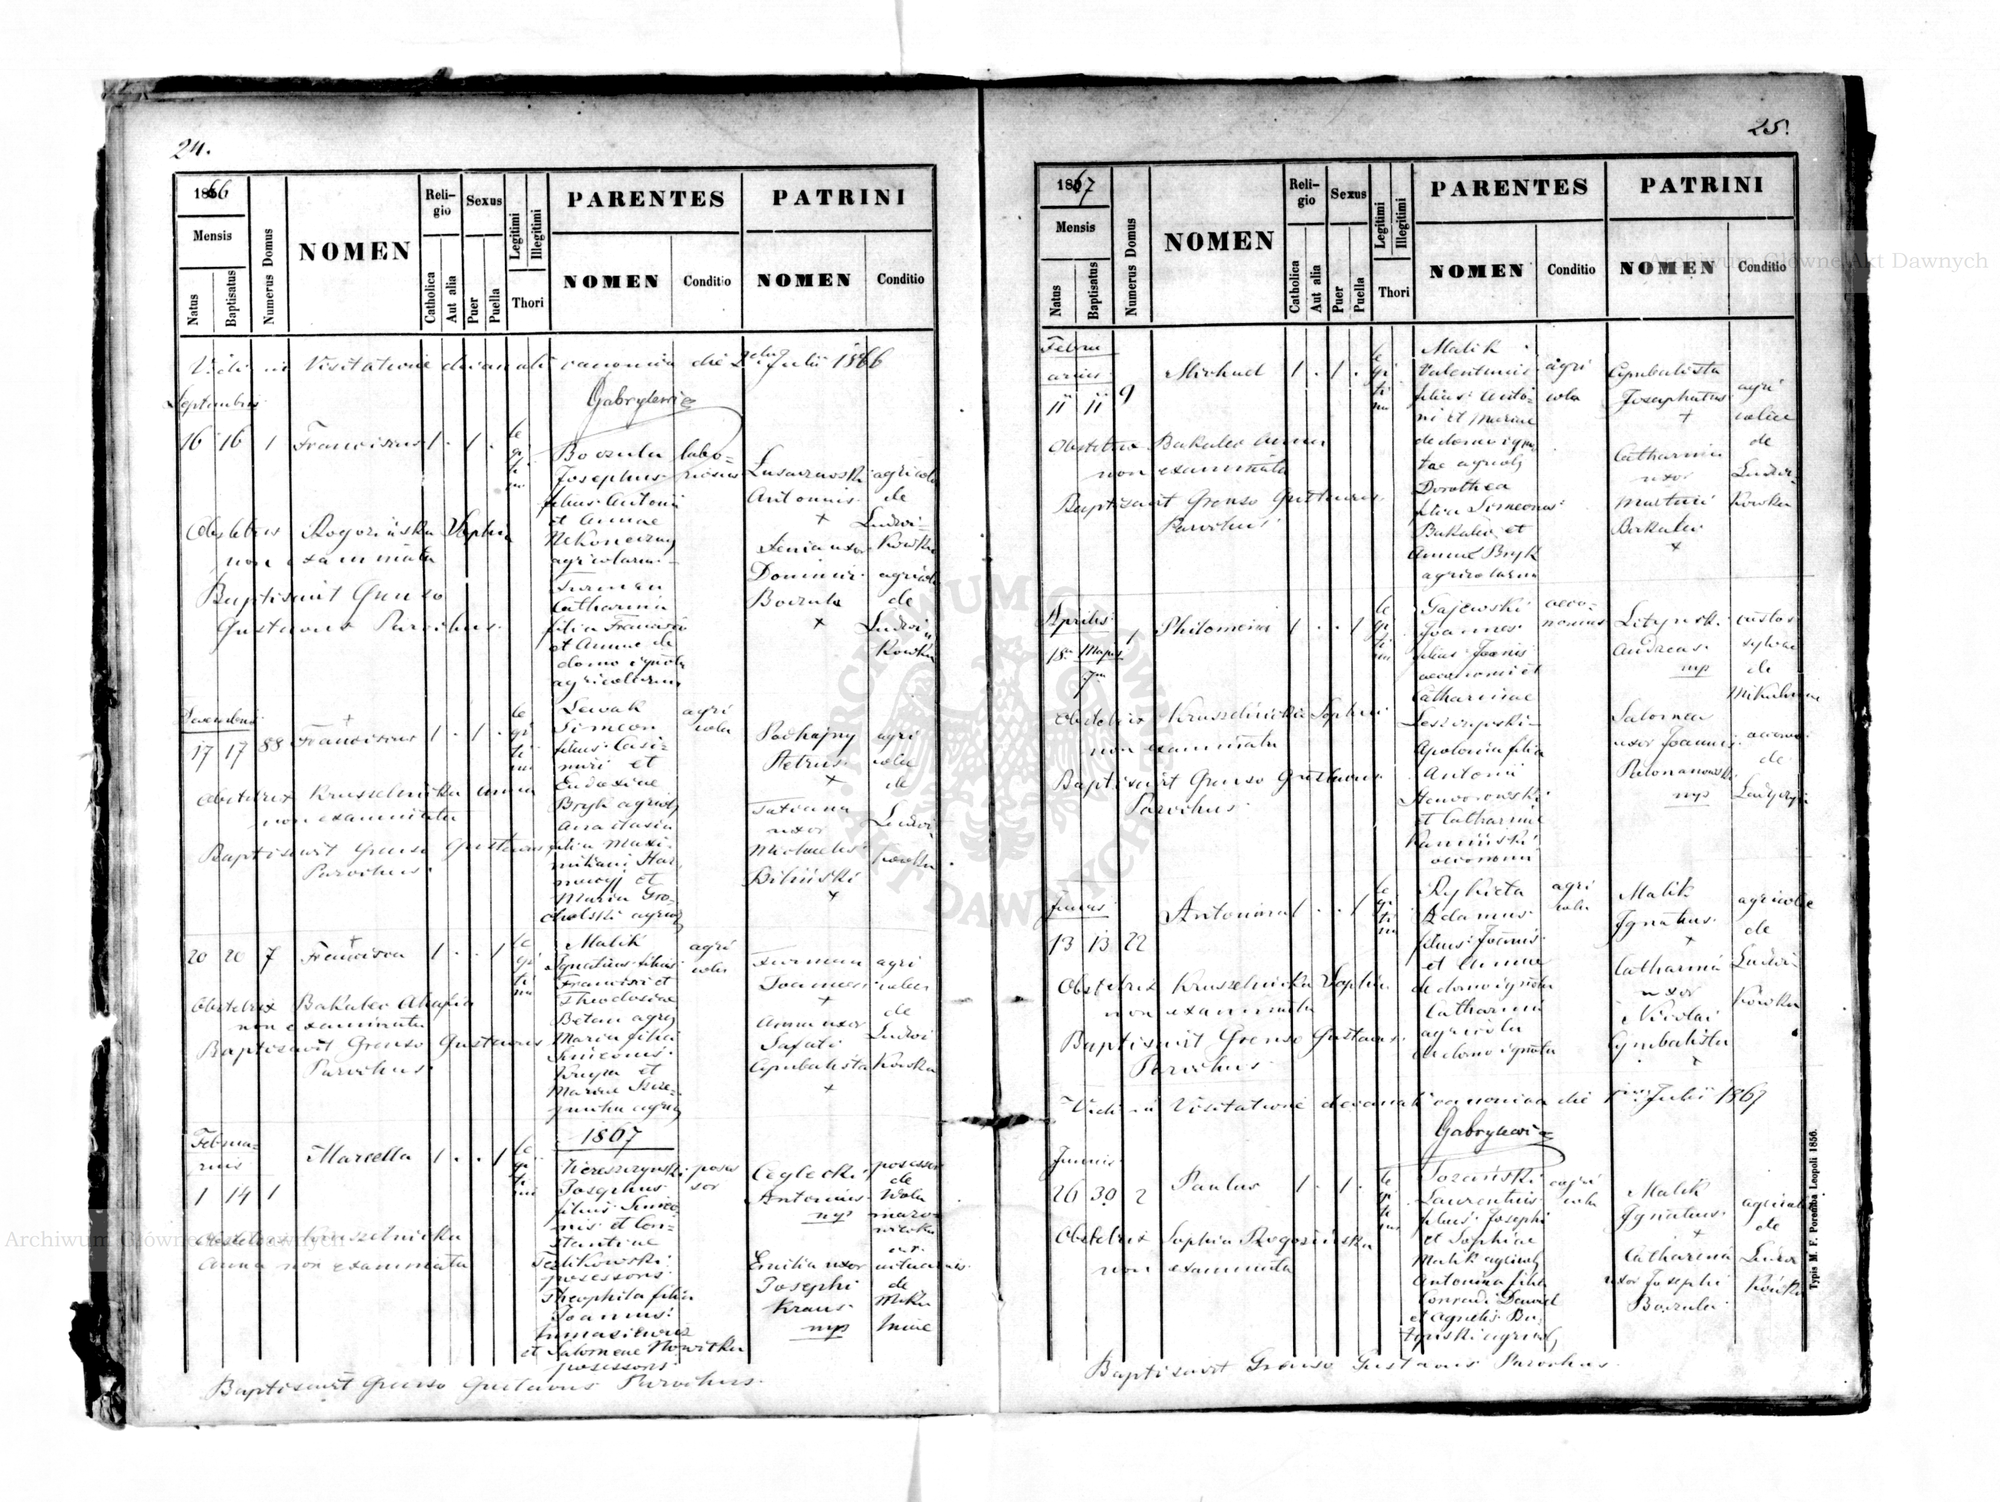 24.
1866
Mensis
Natus
Baptisatus
Numerus Domus
NOMEN
Religio
Catholica
Aut alia
Sexus
Puer
Puella
Legitimi
Illegitimi
Thori
PARENTES
NOMEN
Conditio
PATRINI
NOMEN
Conditio
Vidi in Visitatione decanali canonica die Julii 1866
Gabrylewicz
Septembris
16 16 1 Franciscus 1 . 1 .
le
gi
ti
mi
Boczula
Josephus
filius Antonii
et Annae
Nekoneczny
agricolarum
Furman
Catharina
filia Francisci
et Annae de
domo ignota
agricolarum
labo=
riosus
Antonius
+
Xenia uxor
Dominici
Boczula
+
agricola
de
Ludwi=
kowka
agricola
de
Ludwi
kowka
Obstetrix Rogozińska Sophia
non examinata
Baptisavit Grenso
Gustavus Parochus.
17 17 88 Franciscus 1 . 1 .
+
le
gi
ti
mi
Simeon
filius Casi=
miri et
Eudoxiae
Bryk agricol
Anastasia
filia Maxi=
miliani Har
et
Maria Gro
agricol
agri
cola
Podhajny
Petrus
+
Tatiana
uxor
Michaelis
Biliński
+
agri
colae
de
Ludwi
kowka
Obstetrix Kruszelnicka Anna
non examinata
Baptisavit Grenso Gustavus
Parochus.
20 20 7 Francisca 1 . . 1
+
le
gi
ti
mi
Malik
Ignatius filius
Francisci et
Theodosiae
Betan agric
Maria filia
Simeonis
Krupa et
Mariae
agric
agri
cola
Furman
Joannes
+
Anna uxor
Jafati
Cymbalista
+
agri
colae
de
Ludwi
kowka
Obstetrix Bakalec Ahafia
non examinata
Baptisavit Grenso Gustavus
Parochus.
1867
Februa=
rius
1 14 1 Marcella 1 . . 1
le
gi
ti
mi
Josephus
filius Simeo
nis et Con=
stantiae
Terlikowski
possessoris
Theophila filia
Joannis
et Salomeae Nowitka
possessoris
posses
sor
Ceglecki
Antonius
mp
Emilia uxor
Josephi
Kraus
mp
possessor
de
Wola
de
Miku
Obstetrix Kruszelnicka
Anna non examinata
Baptisavit Grenso Gustavus Parochus.
25.
1867
Mensis
Natus
Baptisatus
Numerus Domus
NOMEN
Religio
Catholica
Aut alia
Sexus
Puer
Puella
Legitimi
Illegitimi
Thori
PARENTES
NOMEN
Conditio
PATRINI
NOMEN
Conditio
Febru
arius
11 11 9 Michael 1 . 1 .
le
gi
ti
mi
Malik
Valentinus
filius Anto=
ni et Mariae
de domo igno
tae agricol
Dorothea
filia Simeonis
Bakalec et
Annae Bryk
agricolarum
agri
cola
Cymbalista
Josaphatus
+
Catharina
uxor
Martini
Bakalec
+
agri
colae
de
Ludwi
kowka
Obstetrix Bakalec Anna
non examinata
Baptisavit Grenso Gustavus
Parochus
Aprilis
18 Majus
1 Philomena 1 . . 1
le
gi
ti
mi
Gajewski
Joannes
filius Joanis
oeconomi et
Catharinae
Leszczynski
Apolonia filia
Antonii
et Catharinae
Kaminski
oeconomi
oeco=
nomus
Lityński
Andreas
mp
Salomea
uxor Joannis
mp
custos
sylvae
de
de
Obstetrix Kruszelnicka Sophia
non examinata
Baptisavit Grenso Gustavus
Parochus.
Junius
13 13 22 Antonina 1 . . 1
le
gi
ti
mi
Adamus
filius Joanis
et Annae
de domo ignota
Catharina
agricola
de domo ignota
agri
cola
Malik
Ignatius
+
Catharina
uxor
Nicolai
Cymbalista
+
agricolae
de
Ludwi
kowka
Obstetrix Kruszelnicka Sophia
non examinata
Baptisavit Grenso Gustavus
Parochus
Vidi in Visitatione decanali canonica die Julii 1867
Gabrylewicz
Junius
26 30 2 Paulus 1 . 1 .
le
gi
ti
mi
Laurentius
filius Josephi
et Sophiae
Malik agricol
Antonina filia
Conradi
et Agnetis
agricol
agri
cola
Malik
Ignatius
+
Catharina
uxor Josephi
Boczula
agricolae
de
Ludwi
kówka
Obstetrix Sophia Rogozińska
non examinata
Baptisavit Grenso Gustavus Parochus.
Typis M. F. Poremba Leopoli 1856.
Archiwum Główne Akt Dawnych
Archiwum Główne Akt Dawnych
ARCHIWUM GŁÓWNE AKT DAWNYCH